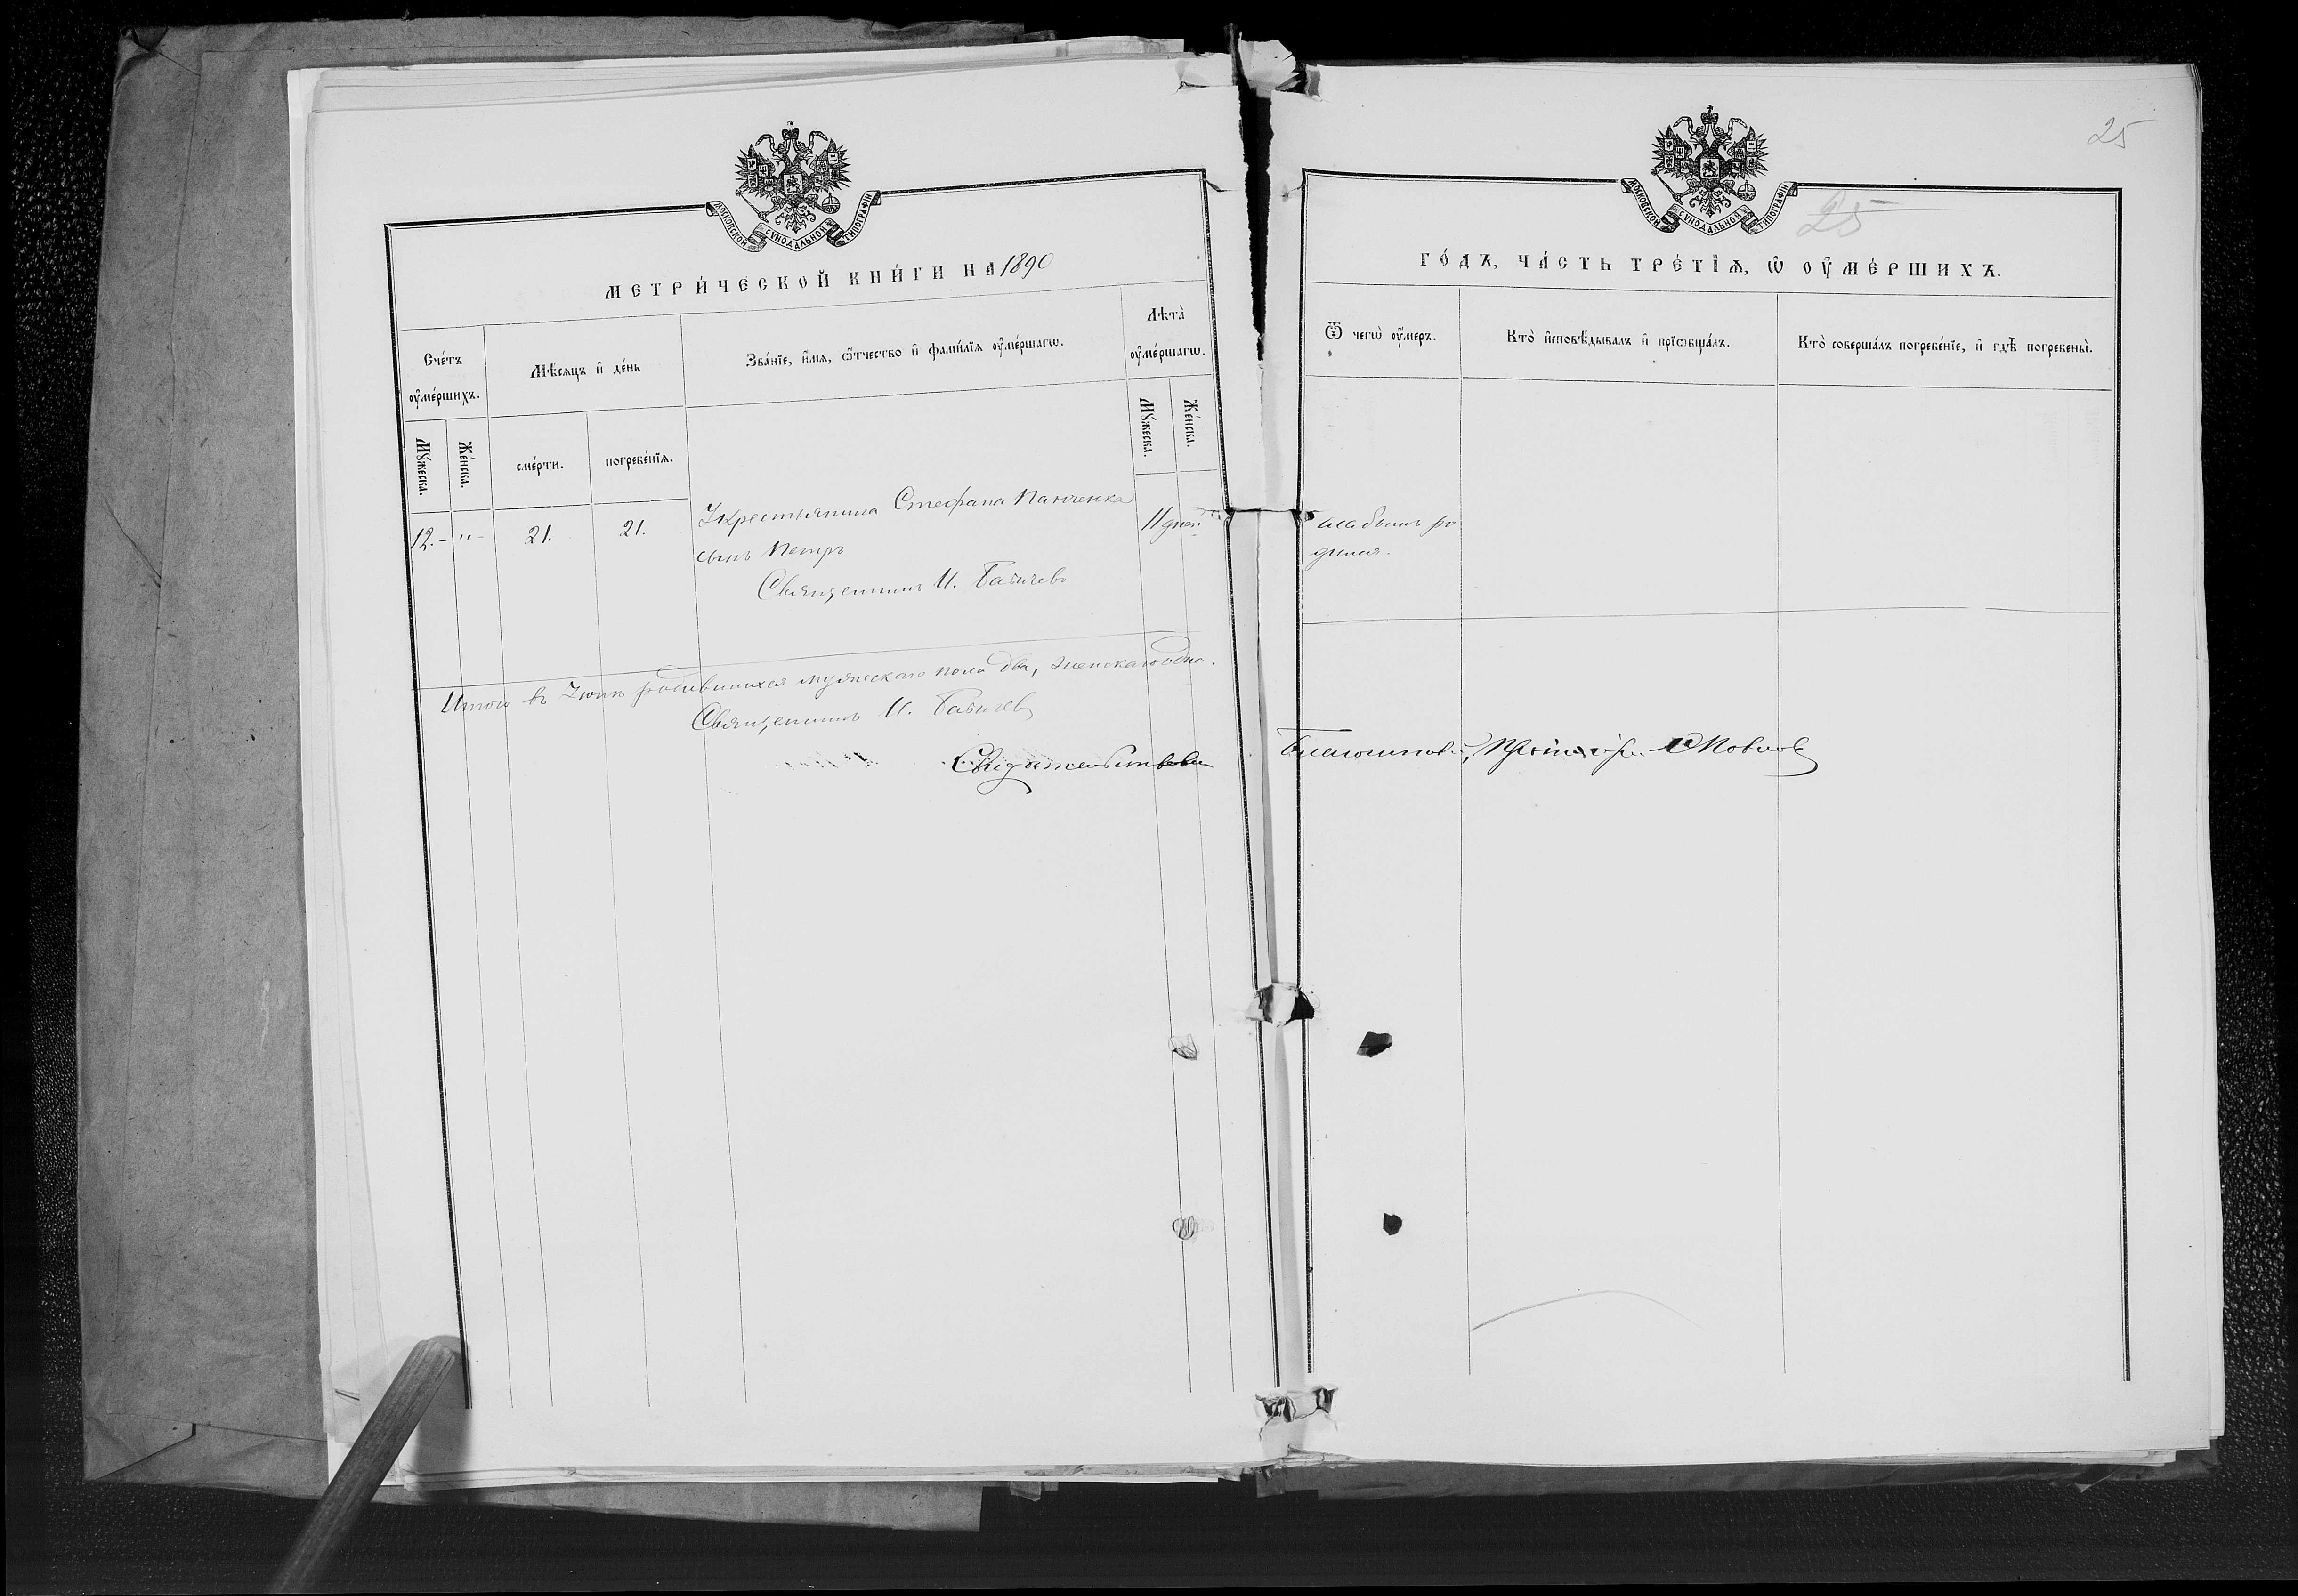 МОСКОВСКОЙ СѴНОДАЛЬНОЙ ТИПОГРАФІИ
МЕТРИ́ЧЕСКОЙ КНИ́ГИ НА 1890
Сче́тъ ᲂу҆ме́ршихъ.
Мꙋ́жеска.
Же́нска.
Мѣ́сѧцъ и҆ де́нь
сме́рти.
погребе́нїѧ.
Зва́нїе, и҆́мѧ, ѻ҆́тчество и҆ фамі́лїѧ ᲂу҆ме́ршагѡ.
Лѣ́та ᲂу҆ме́ршагѡ.
Мꙋ́жеска.
Же́нска.
12. - " -
21.
21.
Укрестьянина Стефана Панченка
сынъ Петръ
Священникъ И. Бабичевъ
11 дней
Итого въ Іюнѣ родившихся мужескаго пола два, женскаго одна.
Священникъ И. Бабичевъ
Свидѣтельствовалъ
25
МОСКОВСКОЙ СѴНОДАЛЬНОЙ ТИПОГРАФІИ
25
ГО́ДЪ, ЧА́СТЬ ТРЕ́ТЇѦ, Ѡ҆ ОУ҆МЕ́РШИХЪ.
Ѿ чегѡ̀ ᲂу҆́меръ.
Кто̀ и҆сповѣ́дывалъ и҆ прїѡбща́лъ.
Кто̀ соверша́лъ погребе́нїе, и҆ гдѣ̀ погребены̀.
слабымъ ро
дился.
Благочинный,